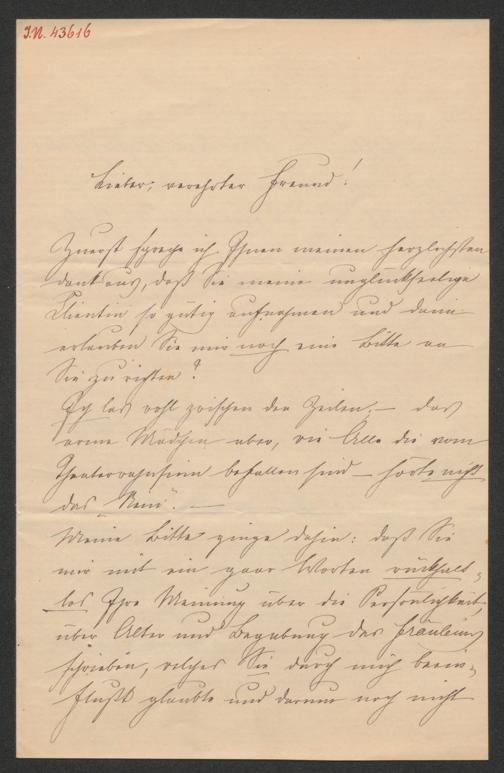 J.N. 43616
Lieber, verehrter Freund!
Zuerst spreche ich Ihnen meinen herzlichsten
Dank aus, daß Sie meine unglückseelige
Klientin so gütig aufnahmen und dann
erlauben Sie mir noch eine Bitte an
Sie zu richten?
Ich las wohl zwischen den Zeilen, — das
arme Mädchen aber, wie Alle die vom
Theaterwahnsinn befallen sind — hörte nicht
das "Nein". —
Meine Bitte ginge dahin: daß Sie
mir mit ein paar Worten rückhalt-
los Ihre Meinung über die Persönlichkeit,
über Alter und Begabung des Fräuleins
schrieben, welches Sie durch mich beein-
flußt glaubte und darum noch nicht